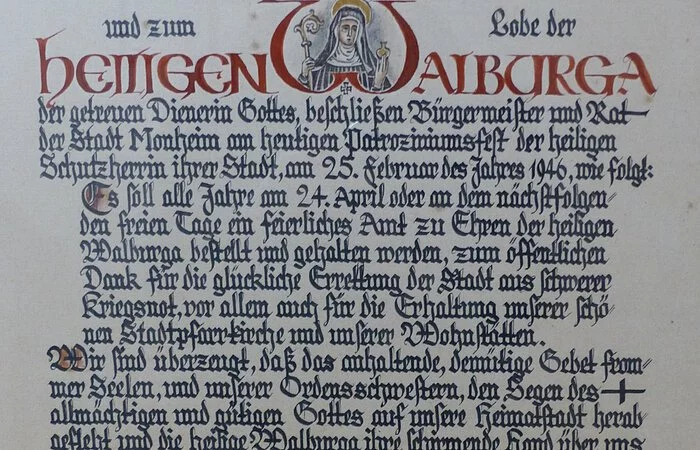 und zum Lobe der
HEILIGEN WALBURGA
der getreuen Dienerin Gottes, beschließen Bürgermeister und Rat
der Stadt Monheim am heutigen Patroziniumsfest der heiligen
Schutzherrin ihrer Stadt, am 25. Februar des Jahres 1946, wie folgt:
Es soll alle Jahre am 24. April oder an dem nächstfolgen-
den freien Tage ein feierliches Amt zu Ehren der heiligen
Walburga bestellt und gehalten werden, zum öffentlichen
Dank für die glückliche Errettung der Stadt aus schwerer
Kriegsnot, vor allem auch für die Erhaltung unserer schö-
nen Stadtpfarrkirche und unserer Wohnstätten.
Wir sind überzeugt, daß das anhaltende, demütige Gebet from-
mer Seelen, und unserer Ordensschwestern, den Segen des
allmächtigen und gütigen Gottes auf unsere Heimatstadt herab
gefleht und die heilige Walburga ihre schirmende Hand über uns